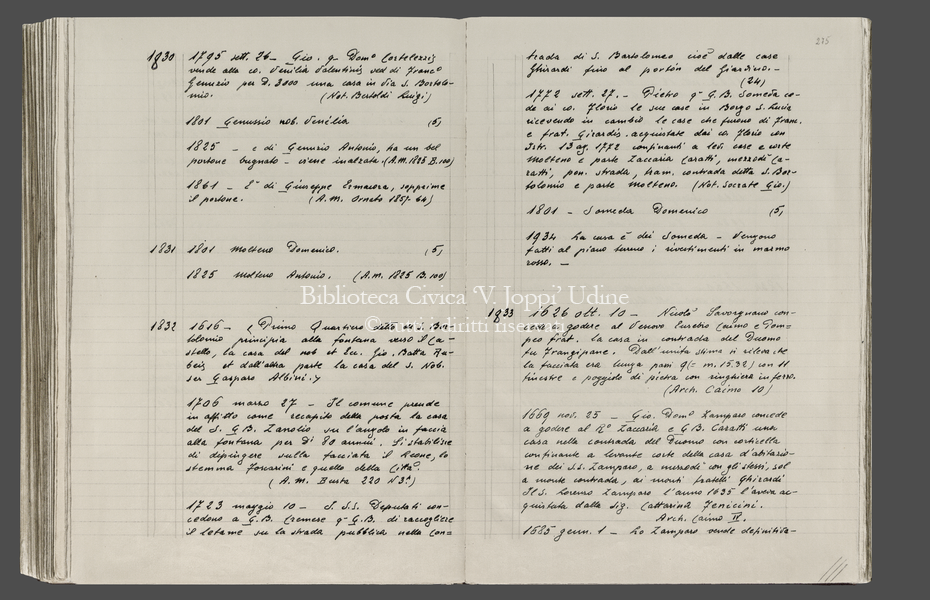 1830 1795 sett. 26 - Gio. q. Domº Cortelezzis
vende alla co. Venilia Valentinis ved di Francº
Genuzio per D. 3000 una casa in via S. Bortolo-
mio. (Not. Bertoldi Luigi)
1801 Genussio nob. Venilia (5)
1825 - è di Genuzio Antonio, ha un bel
portone bugnato - viene inalzata. (A.M. 1825 B. 100)
1861 - E' di Giuseppe Ermacora, sopprime
il portone. (A.M. Ornato 1857-64)
1831 1801 Molteno Domenico. (5)
1825 Molteno Antonio. (A.M. 1825 B. 100)
1832 1616 - Primo Quartiero della via S. Bor
tolomio principia alla fontana verso il Ca-
stello, la casa del nob et Ecc. Gio. Batta Ra-
beis et dall'altra parte la casa del s. Nob.
ser Gasparo Albini.
1706 marzo 27 - Il comune prende
in affitto come recapito della posta la casa
del S. G.B. Zanolio sur l'angolo in faccia
alla fontana per Dⁱ 80 annui. Si stabilisce
di dipingere sulla facciata il Leone, lo
stemma Foscarini e quello della Città.
(A.M. Busta 220 N3º)
1723 maggio 10 - S.S.S. Deputati con-
cedono a G.B. Cremese qᵐ G.B. di raccogliere
il letame su la strada pubblica nella con=
235
trada di S. Bortolomeo cioè dalle case
Ghirardi fino al portón del Giardino. -
(24)
1772 sett. 27. - Pietro qᵐ G.B. Someda ce-
de ai co. Florio le sue case in Borgo S. Lucia
ricevendo in cambio le case che furono di Franc.
e frat. Girardis acquistate dai co. Florio con
Istr. 13 ag. 1772 confinanti a lev. case e corte
Molteno e parte Zaccaria Caratti, mezzodì Ca-
ratti, pon. strada, tram. contrada detta S. Bor-
tolomio e parte Molteno. (Not. Socrate Gio.)
1801 - Someda Domenico (5)
1934 La casa è dei Someda - Vengono
fatti al piano terreno i rivestimenti in marmo
rosso. -
1833 1626 ott. 10 - Nicolò Savorgnano con-
cede a godere al Venovo Eusebio Caimo e Pom=
peo frat. la casa in contrada del Duomo
fu Frangipane. Dall'unita stima si rileva che
la facciata era lunga passi 9 (= m. 15.32) con 11
finestre e poggiolo di pietra con ringhiera in ferro.
(Arch. Caimo 10)
1669 nov. 25 - Gio. Domº Zamparo concede
a godere al Rº Zaccaria e G.B. Caratti una
casa nella contrada del Duomo con corticella
confinante a levante corte della casa d'abitazio-
ne dei S.S. Zamparo, a mezzodì con gli stessi, sol
a monte contrada, ai monti fratelli Ghirardi
Il S. Lorenzo Zamparo l'anno 1635 l'aveva ac-
quistata dalla Sig. Cattarina Fenicini.
Arch. Caimo
1685 genn. 1 - Lo Zamparo vende definitiva-
Biblioteca Civica 'V. Joppi' Udine
© tutti i diritti riservati